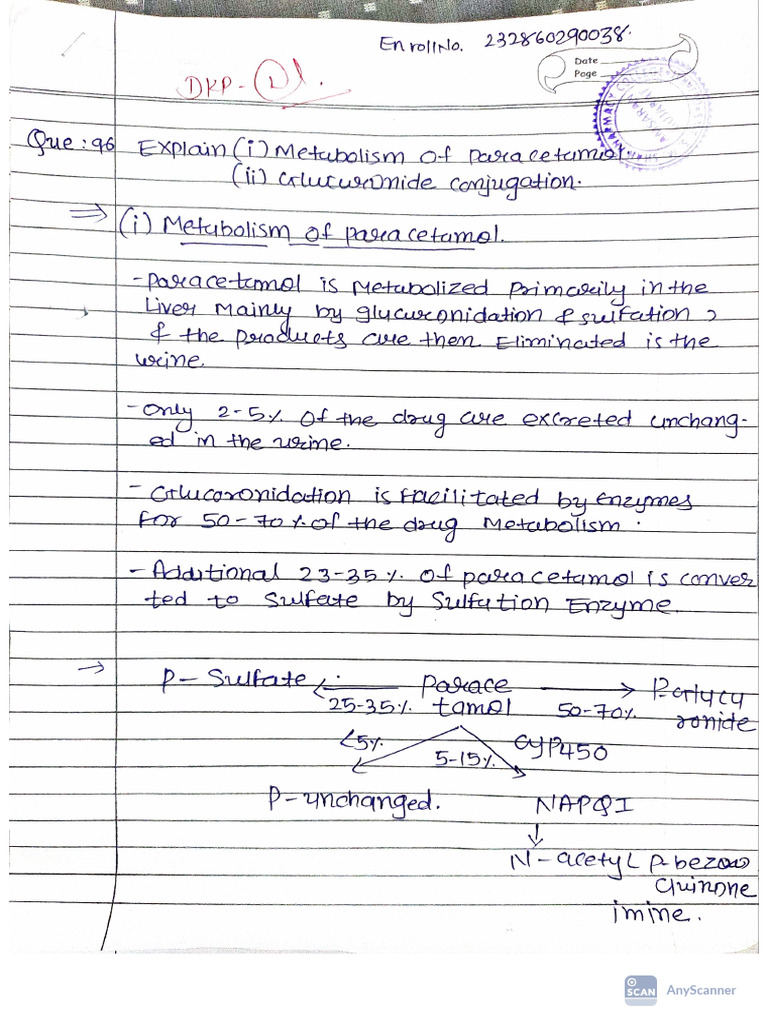 Enroll No. 232860290038.
Date
Page
DKP-(1)
Que: 96 Explain (i) Metabolism of paracetamol.
(ii) Glucuronide conjugation.
⇒ (i) Metabolism of paracetamol.
- Paracetamol is Metabolized primarily in the
Liver Mainly by glucuronidation & sulfation,
& the products are then Eliminated is the
urine.
- Only 2-5% Of the drug are excreted unchang-
ed in the urine.
- Glucoronidation is facilitated by enzymes
for 50-70% of the drug Metabolism.
- Additional 23-35% of paracetamol is conver
ted to sulfate by Sulfation Enzyme.
→ P- Sulfate ← Parace → P-Glucu
25-35% tamol 50-70% ronide
<5% 5-15% CYP450
P-unchanged. NAPQI
↓
N-acetyl p-bezo
Quinone
imine.
SCAN AnyScanner